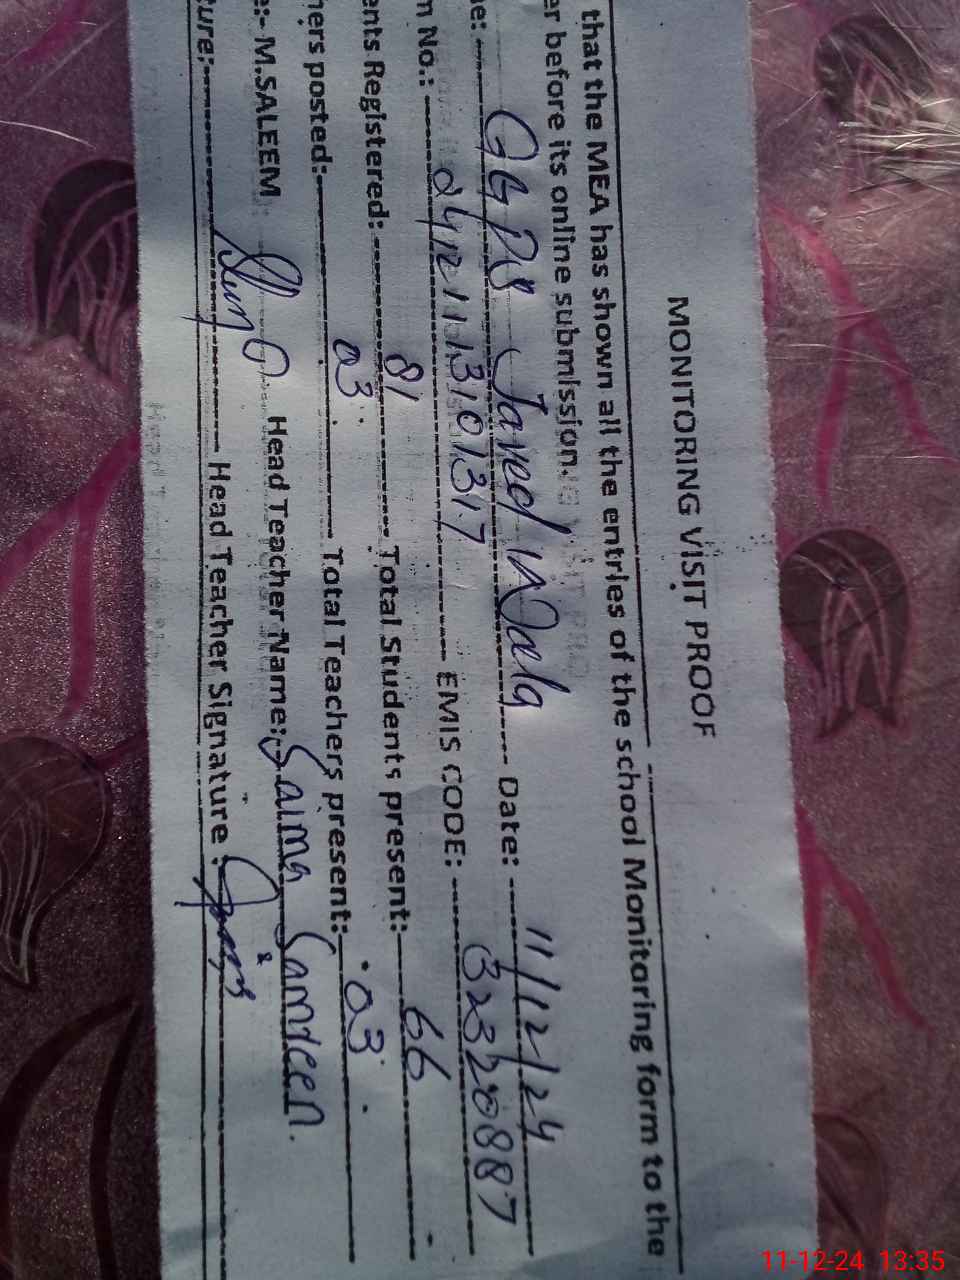 MONITORING VISIT PROOF
that the MEA has shown all the entries of the school Monitoring form to the
er before its online submission.
e: GGPS Javed Wala Date: 11/12/24
n No.: 2412111310131.7 EMIS CODE: 32320887
ents Registered: 81 Total Students present: 66
hers posted: 03 Total Teachers present: 03
e:- M.SALEEM Head Teacher Name: Saima Samreen.
ture: Head Teacher Signature :
11-12-24 13:35